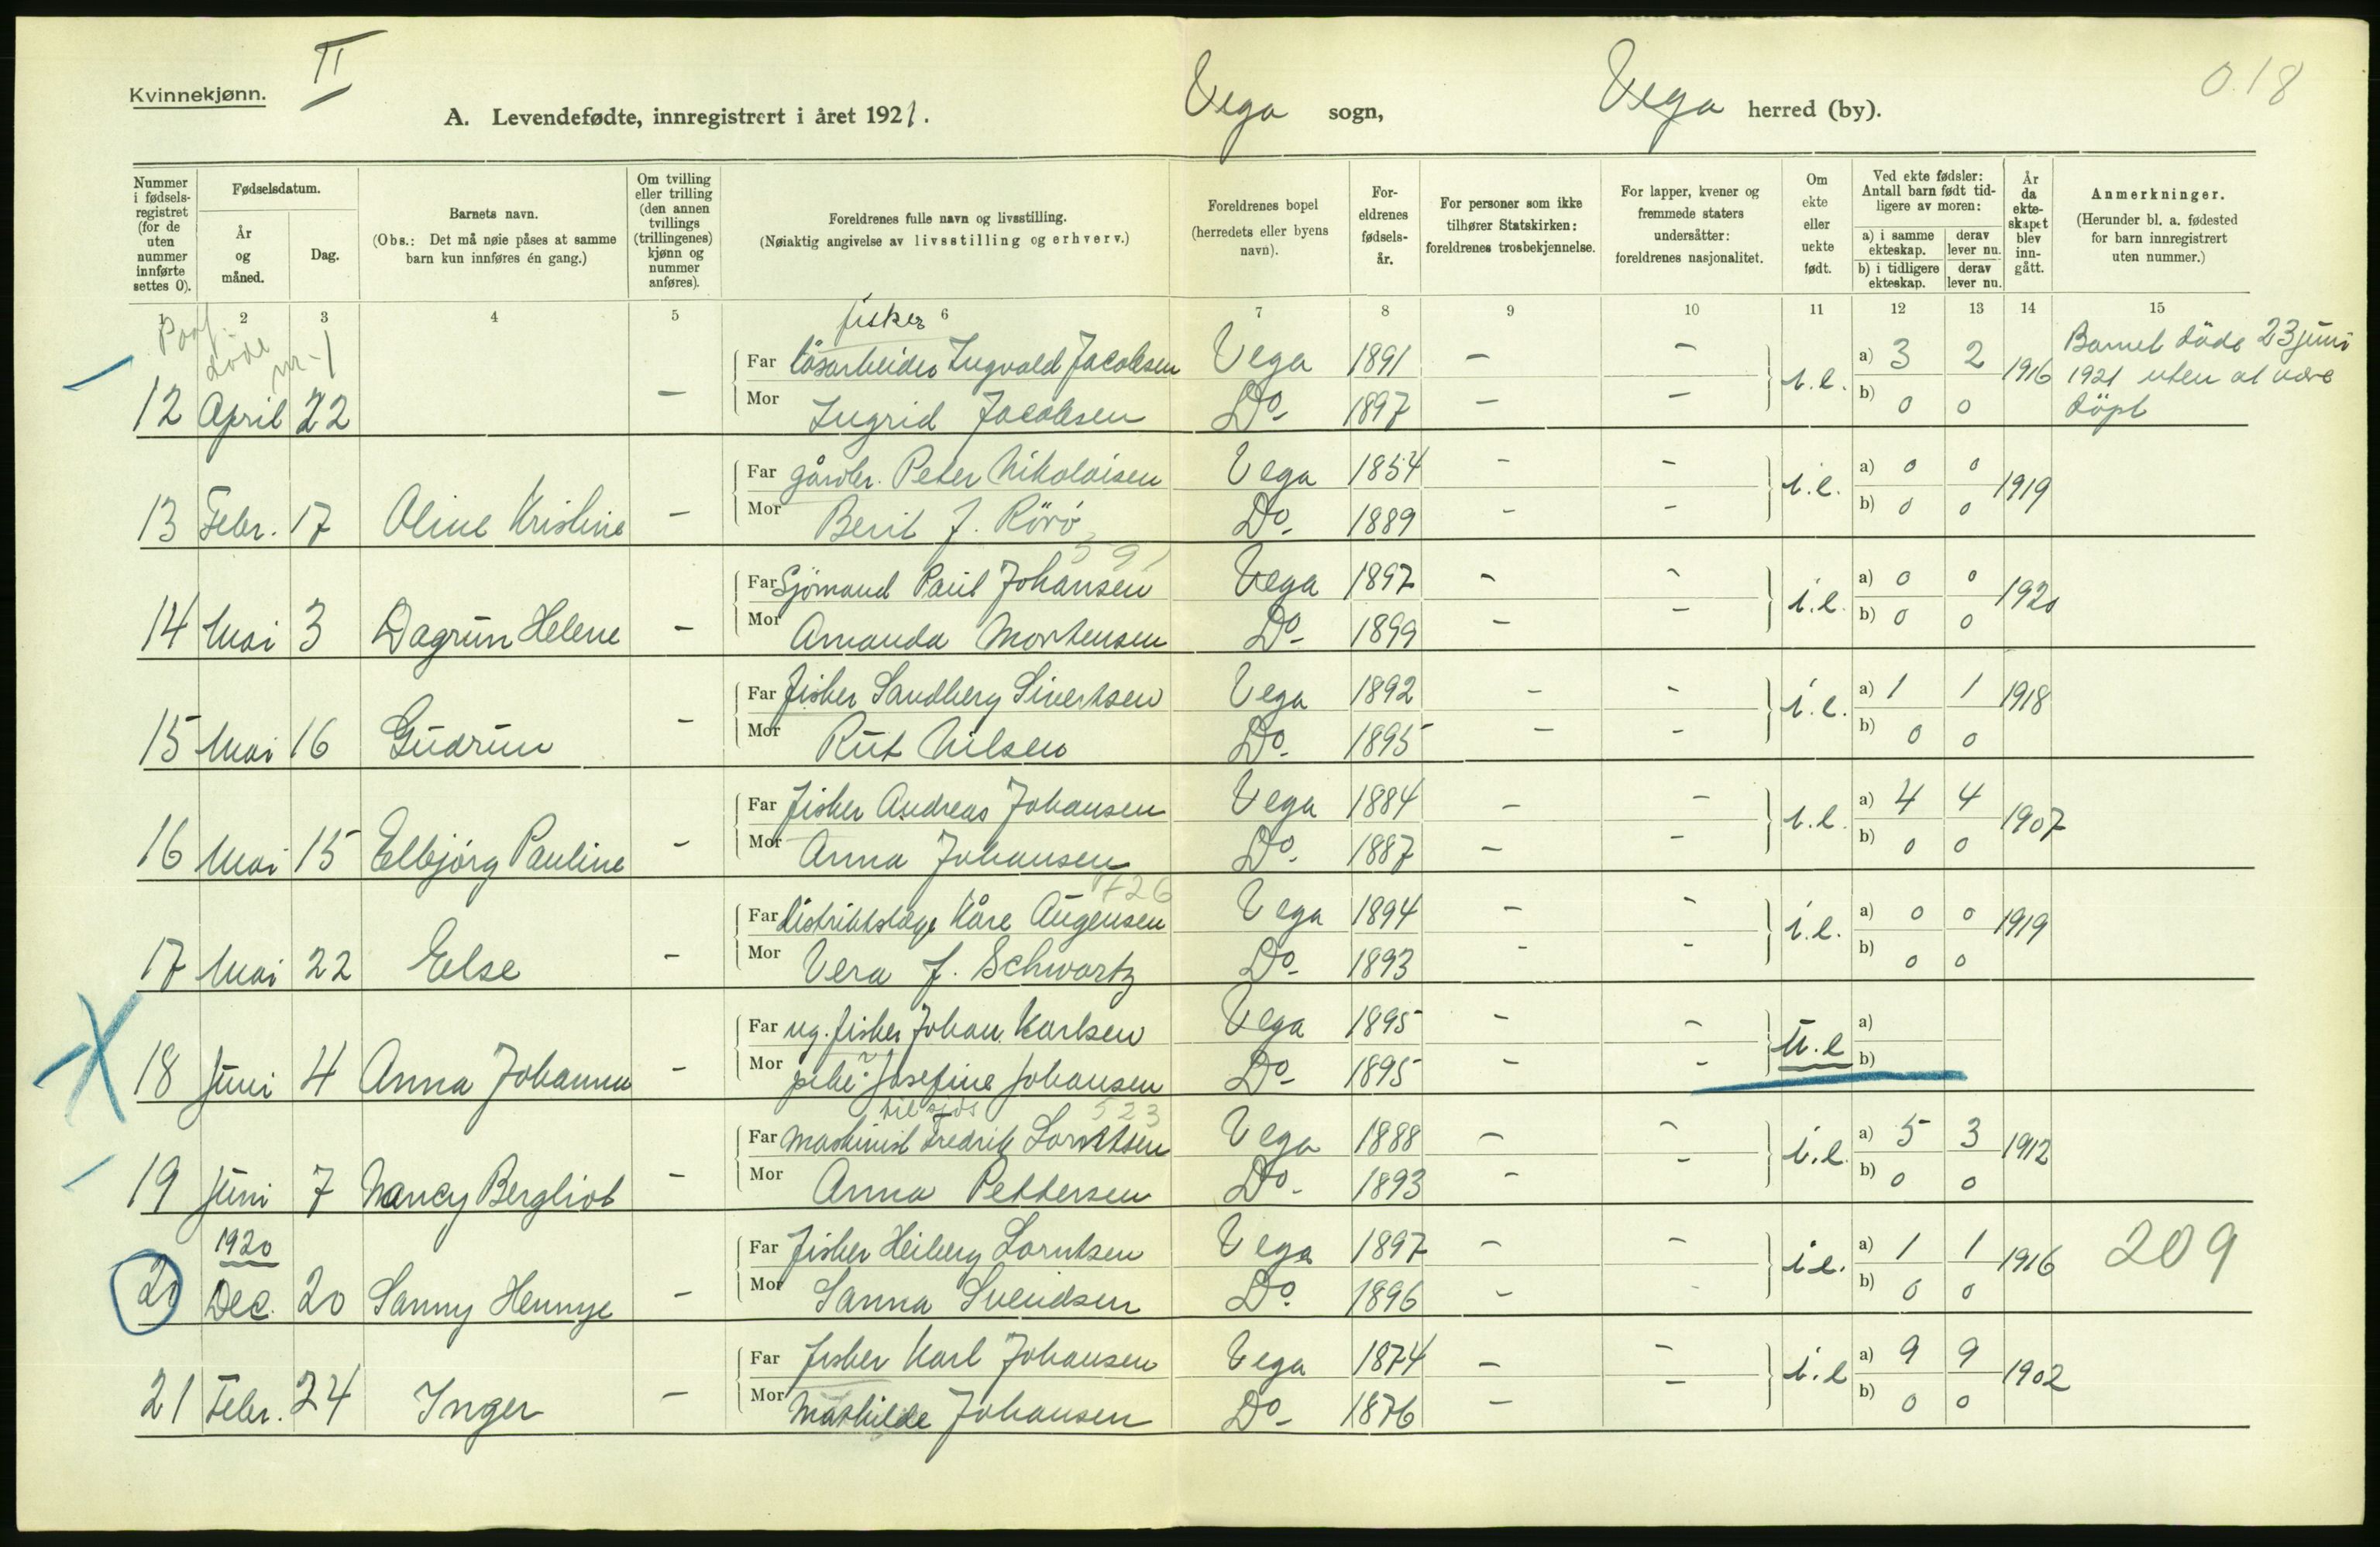 Kvinnekjønn.
II
A. Levendefødte, innregistrert i året 1921.
Vega sogn,
Vega herred (by).
0.18
Nummer i fødselsregistret (for de uten nummer innførte settes 0).
Fødselsdatum.
År og måned.
Dag.
Barnets navn.
(Obs.: Det må nøie påses at samme barn kun innføres én gang.)
Om tvilling eller trilling (den annen tvillings (trillingenes) kjønn og nummer anføres).
Foreldrenes fulle navn og livsstilling.
(Nøiaktig angivelse av livsstilling og erhverv.)
Foreldrenes bopel (herredets eller byens navn).
Foreldrenes fødselsår.
For personer som ikke tilhører Statskirken: foreldrenes trosbekjennelse.
For lapper, kvener og fremmede staters undersåtter: foreldrenes nasjonalitet.
Om ekte eller uekte født.
Ved ekte fødsler: Antall barn født tidligere av moren:
a) i samme ekteskap. derav lever nu.
b) i tidligere ekteskap. derav lever nu.
År da ekteskapet blev inngått.
Anmerkninger.
(Herunder bl. a. fødested for barn innregistrert uten nummer.)
1 2 3 4 5 6 7 8 9 10 11 12 13 14 15
døde nr. 1
fisker
Far løsarbeider Ingvald Jacobsen Vega 1891 - - a) 3 2
12 April 22 - Mor Ingrid Jacobsen Do- 1897 - - i.e. b) 0 0 1916
Barnet døde 23 juni
1921 uten at være
døpt
Far gårdbr. Peter Nikolaisen Vega 1854 - - a) 0 0
13 Febr. 17 Oline Kristine - Mor Berit J. Rörö Do- 1889 - - i.e. b) 0 0 1919
591
Far Sjömand Paul Johansen Vega 1897 - - a) 0 0
14 Mai 3 Dagrun Helene - Mor Amanda Mortensen Do- 1899 - - i.e. b) 0 0 1920
Far fisker Sandberg Sivertsen Vega 1892 - - a) 1 1
15 Mai 16 Gudrun - Mor Rut Nilsen Do- 1895 - - i.e. b) 0 0 1918
Far fisker Andreas Johansen Vega 1884 - - a) 4 4
16 Mai 15 Elbjörg Pauline - Mor Anna Johansen Do- 1887 - - i.e. b) 0 0 1907
726
Far Distriktslæge Kåre Augensen Vega 1894 - - a) 0 0
17 Mai 22 Else - Mor Vera f. Schwartz Do- 1893 - - i.e. b) 0 0 1919
Far ug. fisker Johan Karlsen Vega 1895 - - a)
18 Juni 4 Anna Johanna - Mor pike Josefine Johansen Do- 1895 - - u.e b)
til sjøs 523
Far Maskinist Fredrik Lorntsen Vega 1888 - - a) 5 3
19 Juni 7 Nancy Bergliot - Mor Anna Pettersen Do- 1893 - - i.e. b) 0 0 1912
1920
Far fisker Heiberg Lorntsen Vega 1897 - - a) 1 1
20 Dec. 20 Sanny Hennye - Mor Sanna Svendsen Do- 1896 - - i.e. b) 0 0 1916 209
Far fisker Karl Johansen Vega 1874 - - a) 9 9
21 Febr. 24 Inger - Mor Mathilde Johansen Do- 1876 - - i.e b) 0 0 1902